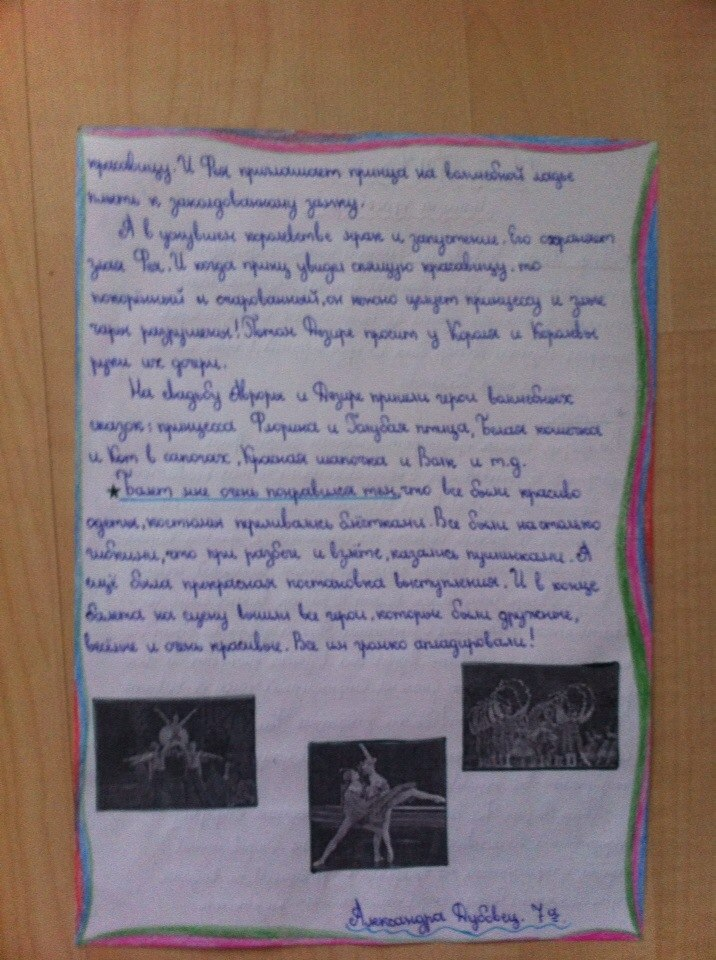 красавицу. И Фея приглашает принца на волшебной ладье
плыть к заколдованному замку.
А в уснувшем королевстве мрак и запустение. Его охраняет
злая Фея. И когда принц увидел спящую красавицу, то
покорённый и очарованный, он нежно целует принцессу и злые
чары разрушены! Потом Дезире просит у Короля и Королевы
руки их дочери.
На свадьбу Авроры и Дезире пришли герои волшебных
сказок: принцесса Флорина и Голубая птица, Белая кошечка
и Кот в сапогах, Красная шапочка и Волк и т.д.
★ Балет мне очень понравился тем, что все были красиво
одеты, костюмы переливались блёстками. Все были настолько
гибкими, что при разбеге и взлёте, казались пушинками. А
ещё была прекрасная постановка выступления. И в конце
балета на сцену вышли все герои, которые были дружные,
весёлые и очень красивые. Все им громко аплодировали!
Александра Дубовец. 7